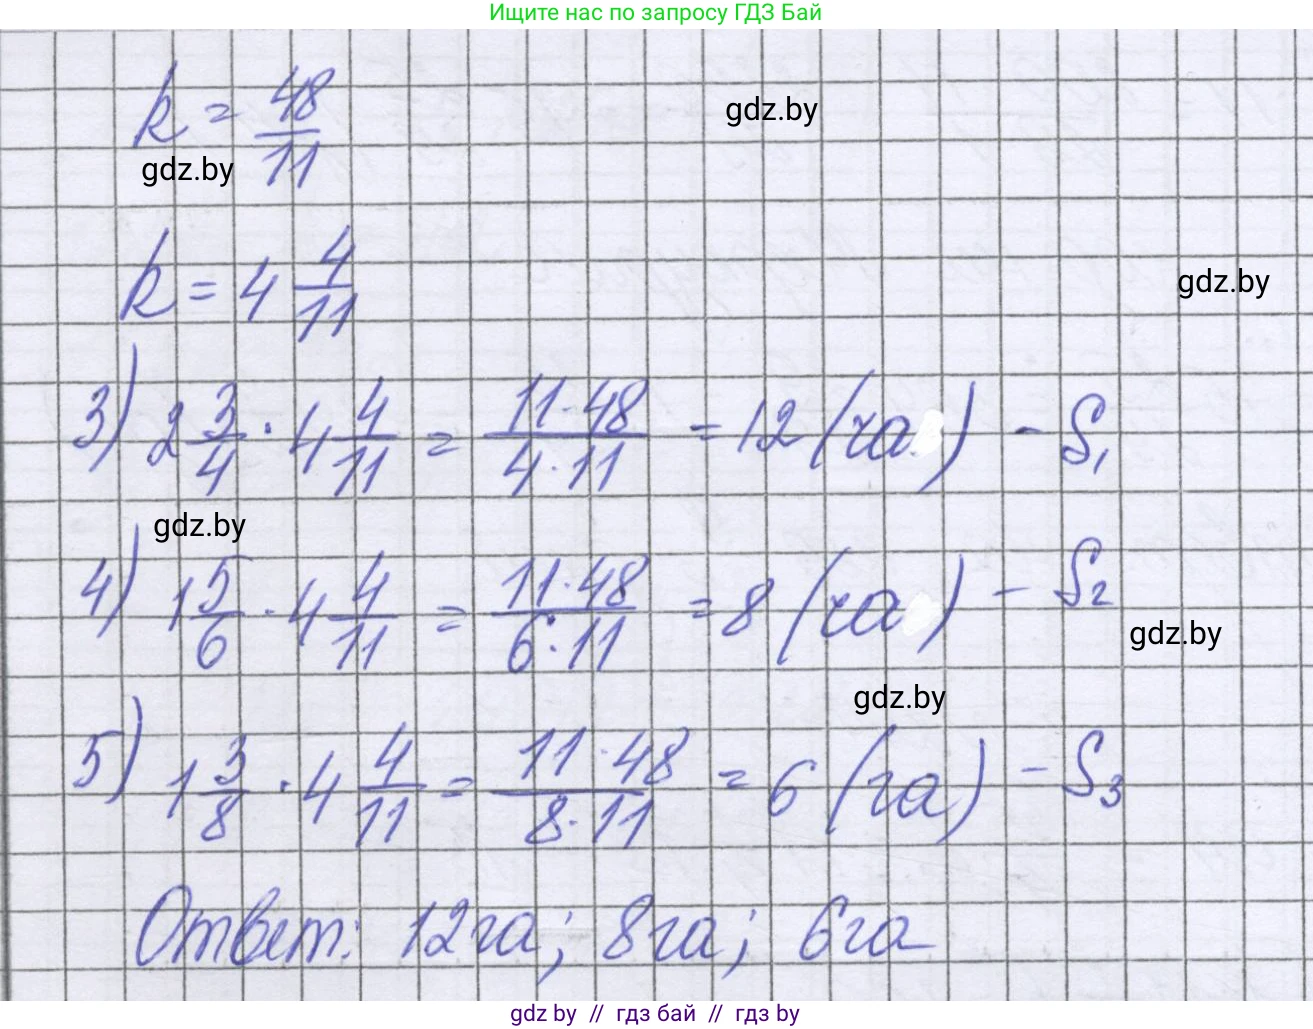 Ищите нас по запросу ГДЗ Бай
k = 48/11
gdz.by
gdz.by
k = 4 4/11
gdz.by
3) 2 3/4 · 4 4/11 = 11·48/4·11 = 12 (га) - S₁
gdz.by
4) 1 5/6 · 4 4/11 = 11·48/6·11 = 8 (га) - S₂
gdz.by
gdz.by
5) 1 3/8 · 4 4/11 = 11·48/8·11 = 6 (га) - S₃
Ответ: 12га; 8га; 6га
gdz.by // гдз бай // гдз by